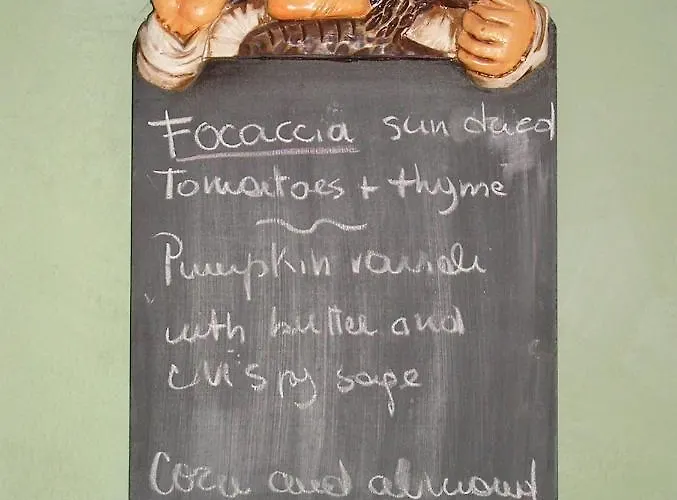 Focaccia sun dried
Tomatoes + thyme
Pumpkin ravioli
with butter and
crispy sage
Corn and almond